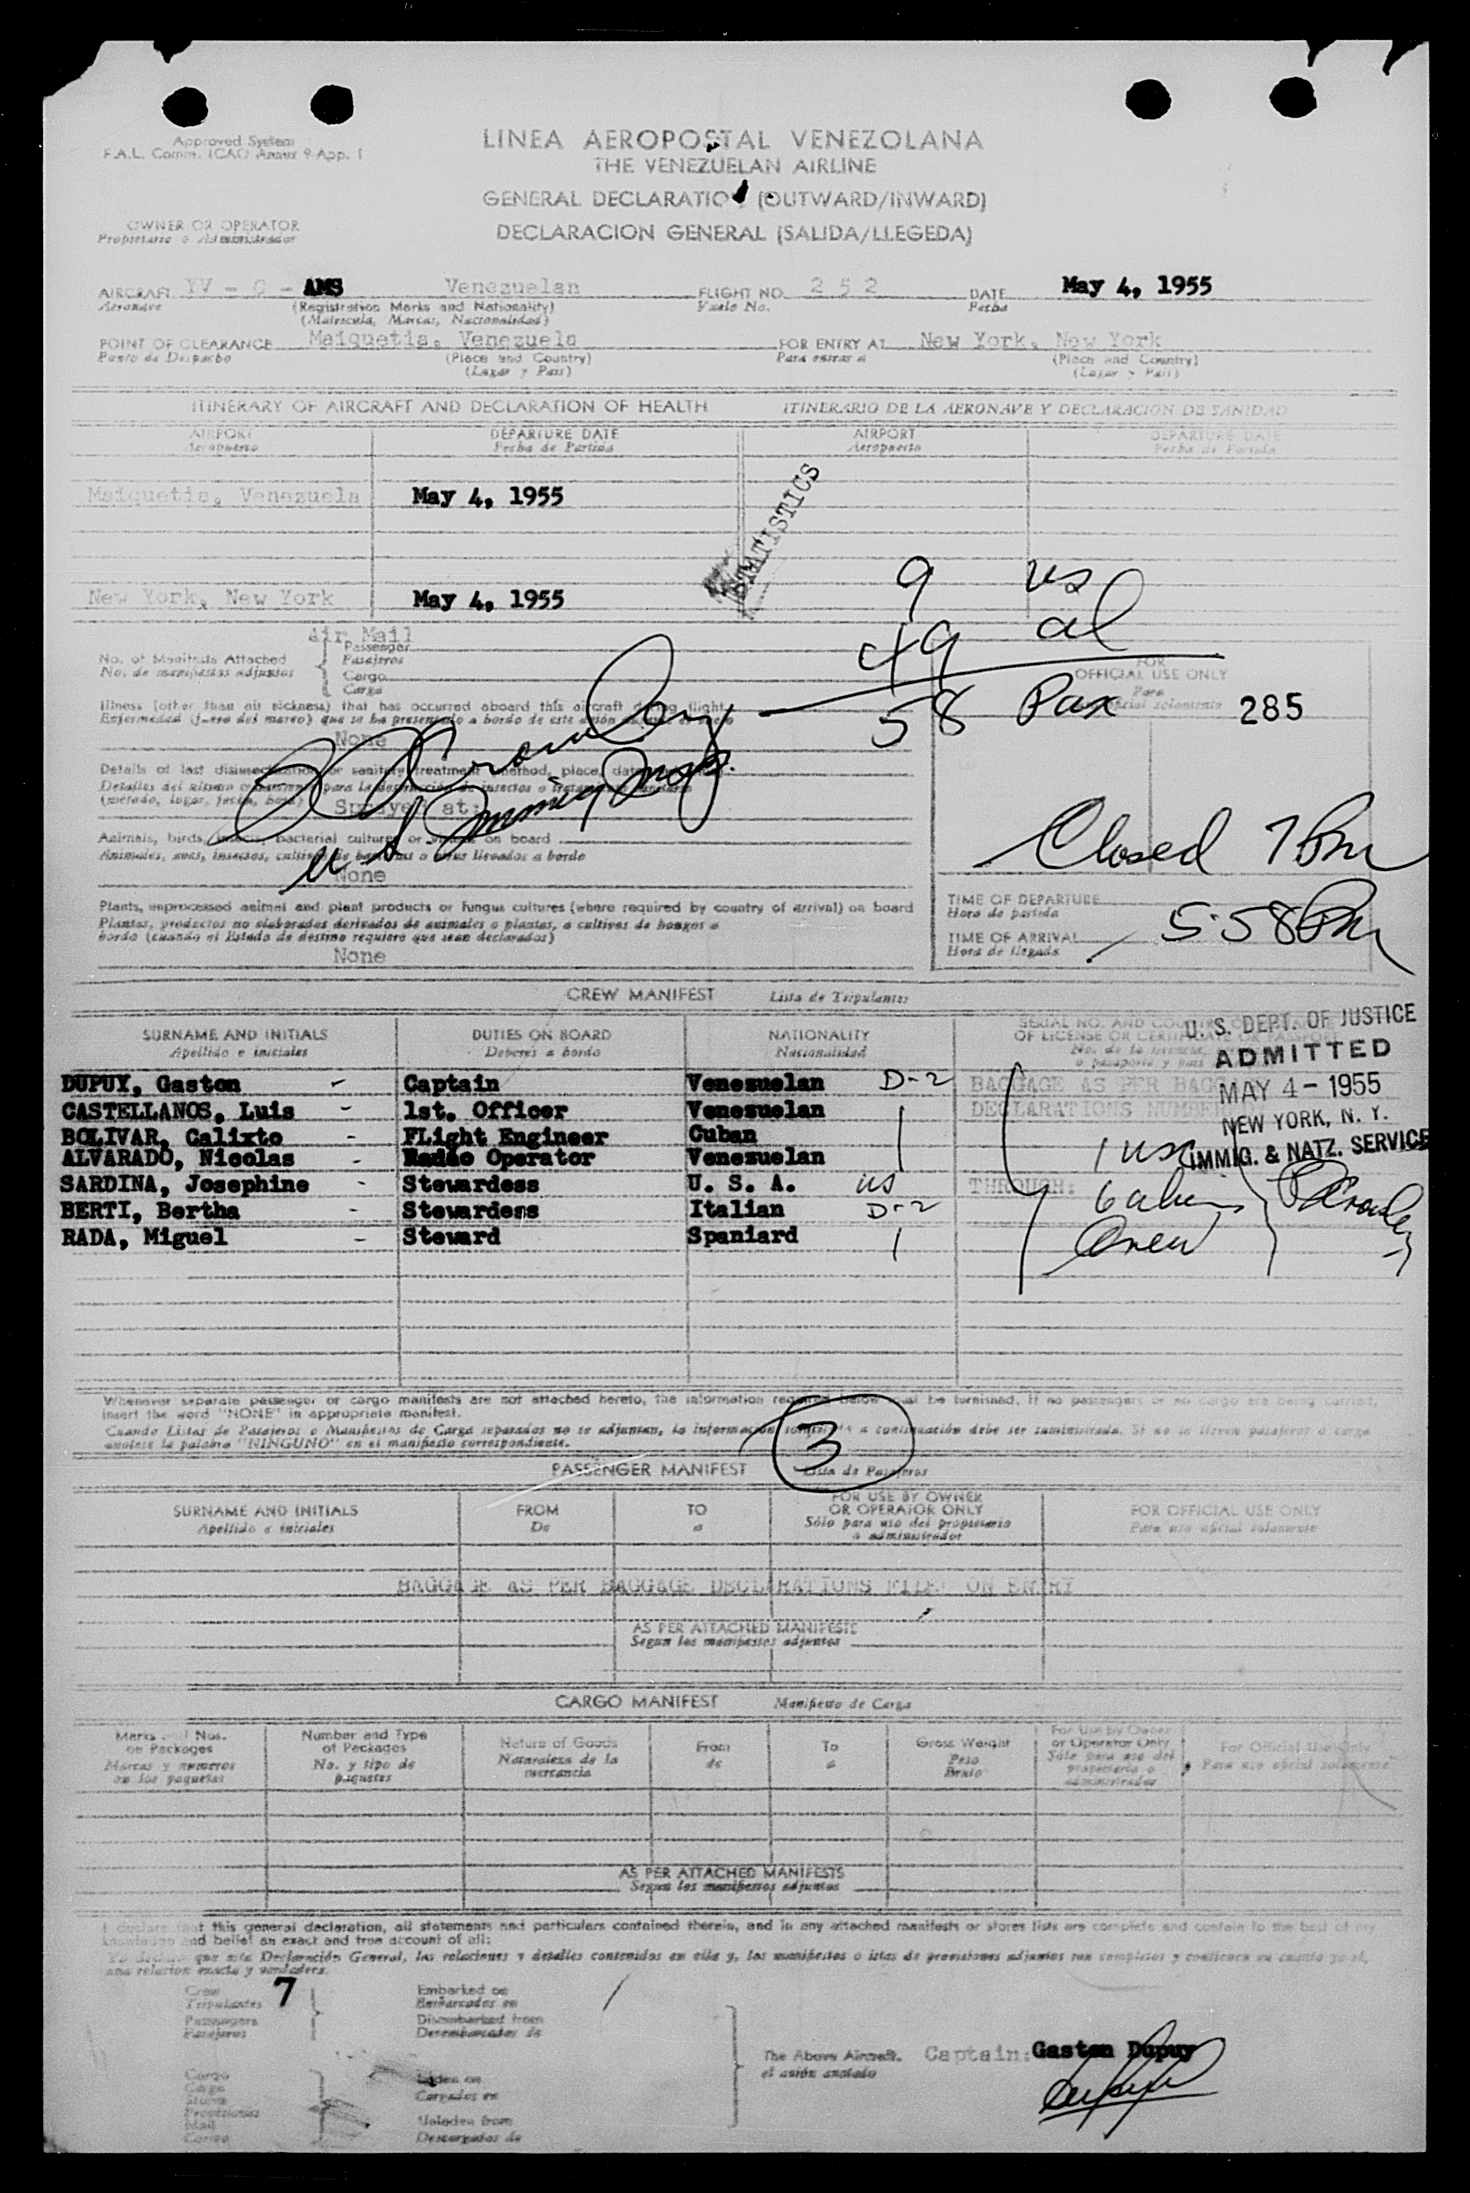 Approved System
F.A.L. Comm. ICAO Annex 9 App. 1
LINEA AEROPOSTAL VENEZOLANA
THE VENEZUELAN AIRLINE
GENERAL DECLARATION (OUTWARD/INWARD)
DECLARACION GENERAL (SALIDA/LLEGEDA)
OWNER OR OPERATOR
Propietario o Administrador
AIRCRAFT YV - C - AMS Venezuelan FLIGHT NO. 252 DATE May 4, 1955
Aeronave (Registration Marks and Nationality) Vuelo No. Fecha
(Matricula, Marcas, Nacionalidad)
POINT OF CLEARANCE Maiquetia, Venezuela FOR ENTRY AT New York, New York
Punto de Despacho (Place and Country) Para entrar a (Place and Country)
(Lugar y Pais) (Lugar y Pais)
ITINERARY OF AIRCRAFT AND DECLARATION OF HEALTH ITINERARIO DE LA AERONAVE Y DECLARACION DE SANIDAD
AIRPORT DEPARTURE DATE AIRPORT DEPARTURE DATE
Aeropuerto Fecha de Partida Aeropuerto Fecha de Partida
Maiquetia, Venezuela May 4, 1955
STATISTICS
New York, New York May 4, 1955
9 us
49 al
58 Pax
Air Mail
Passenger
No. of Manifests Attached Pasajeros
No. de manifiestos adjuntos Cargo
Carga
FOR
OFFICIAL USE ONLY
Para
oficial solamente 285
Illness (other than air sickness) that has occurred aboard this aircraft during flight
Enfermedad (fuera del mareo) que se ha presentado a bordo de este avión
None
Details of last disinsectization or sanitary treatment (method, place, date
Detalles del ultimo para la destrucción de insectos o tratamiento
(metodo, lugar, fecha, hora) Sprayed at:
Crowley
US Immig
Animals, birds, insects, bacterial cultures or virus on board
Animales, aves, insectos, cultivos de bacterias o virus llevados a bordo
None
Closed 7 Pm
Plants, unprocessed animal and plant products or fungus cultures (where required by country of arrival) on board
Plantas, productos no elaborados derivados de animales o plantas, o cultivos de hongos a
bordo (cuando el Estado de destino requiere que sean declarados)
None
TIME OF DEPARTURE
Hora de partida
TIME OF ARRIVAL 5:58 Pm
Hora de llegada
CREW MANIFEST Lista de Tripulantes
SURNAME AND INITIALS DUTIES ON BOARD NATIONALITY SERIAL NO. AND
Apellido e iniciales Deberes a bordo Nacionalidad OF LICENSE OR CERTIFICATE OR PASSPORT
U. S. DEPT. OF JUSTICE
ADMITTED
MAY 4 - 1955
NEW YORK, N. Y.
IMMIG. & NATZ. SERVICE
DUPUY, Gaston - Captain Venezuelan D-2 BAGGAGE AS PER
CASTELLANOS, Luis - 1st. Officer Venezuelan DECLARATIONS NUMBER
BOLIVAR, Calixto - FLight Engineer Cuban
ALVARADO, Nicolas - Radio Operator Venezuelan 1 usc
SARDINA, Josephine - Stewardess U. S. A. us THROUGH:
BERTI, Bertha - Stewardess Italian D-2 6 aliens
RADA, Miguel - Steward Spaniard Crew
Crowley
Whenever separate passenger or cargo manifests are not attached hereto, the information required below shall be furnished. If no passengers or no cargo are being carried,
insert the word "NONE" in appropriate manifest.
Cuando Listas de Pasajeros o Manifiestos de Carga separados no se adjuntan, la información a continuación debe ser suministrada. Si no se llevan pasajeros o carga
anotese la palabra "NINGUNO" en el manifiesto correspondiente.
3
PASSENGER MANIFEST Lista de Pasajeros
SURNAME AND INITIALS FROM TO FOR USE BY OWNER OR OPERATOR ONLY FOR OFFICIAL USE ONLY
Apellido e iniciales De a Sólo para uso del propietario o administrador Para uso oficial solamente
BAGGAGE AS PER BAGGAGE DECLARATIONS FILED ON ENTRY
AS PER ATTACHED MANIFESTS
Segun los manifiestos adjuntos
CARGO MANIFEST Manifiesto de Carga
Marks and Nos. on Packages Number and Type of Packages Nature of Goods From To Gross Weight For Use by Owner or Operator Only For Official Use Only
Marcas y numeros en los paquetes No. y tipo de paquetes Naturaleza de la mercancia de a Peso Bruto Sólo para uso del propietario o administrador Para uso oficial solamente
AS PER ATTACHED MANIFESTS
Segun los manifiestos adjuntos
I declare that this general declaration, all statements and particulars contained therein, and in any attached manifests or stores lists are complete and contain to the best of my
knowledge and belief an exact and true account of all:
que esta Declaración General, las relaciones y detalles contenidos en ella y, los manifiestos o listas de provisiones adjuntos son completos y contienen en cuanto yo sé,
una relacion exacta y verdadera.
Crew 7 Embarked on
Tripulantes Embarcados en
Passengers Disembarked from
Pasajeros Desembarcados de
The Above Aircraft. Captain: Gaston Dupuy
el avión anotado
Cargo Laden on
Carga Cargados en
Stores
Provisiones
Mail Unladen from
Correo Descargados de